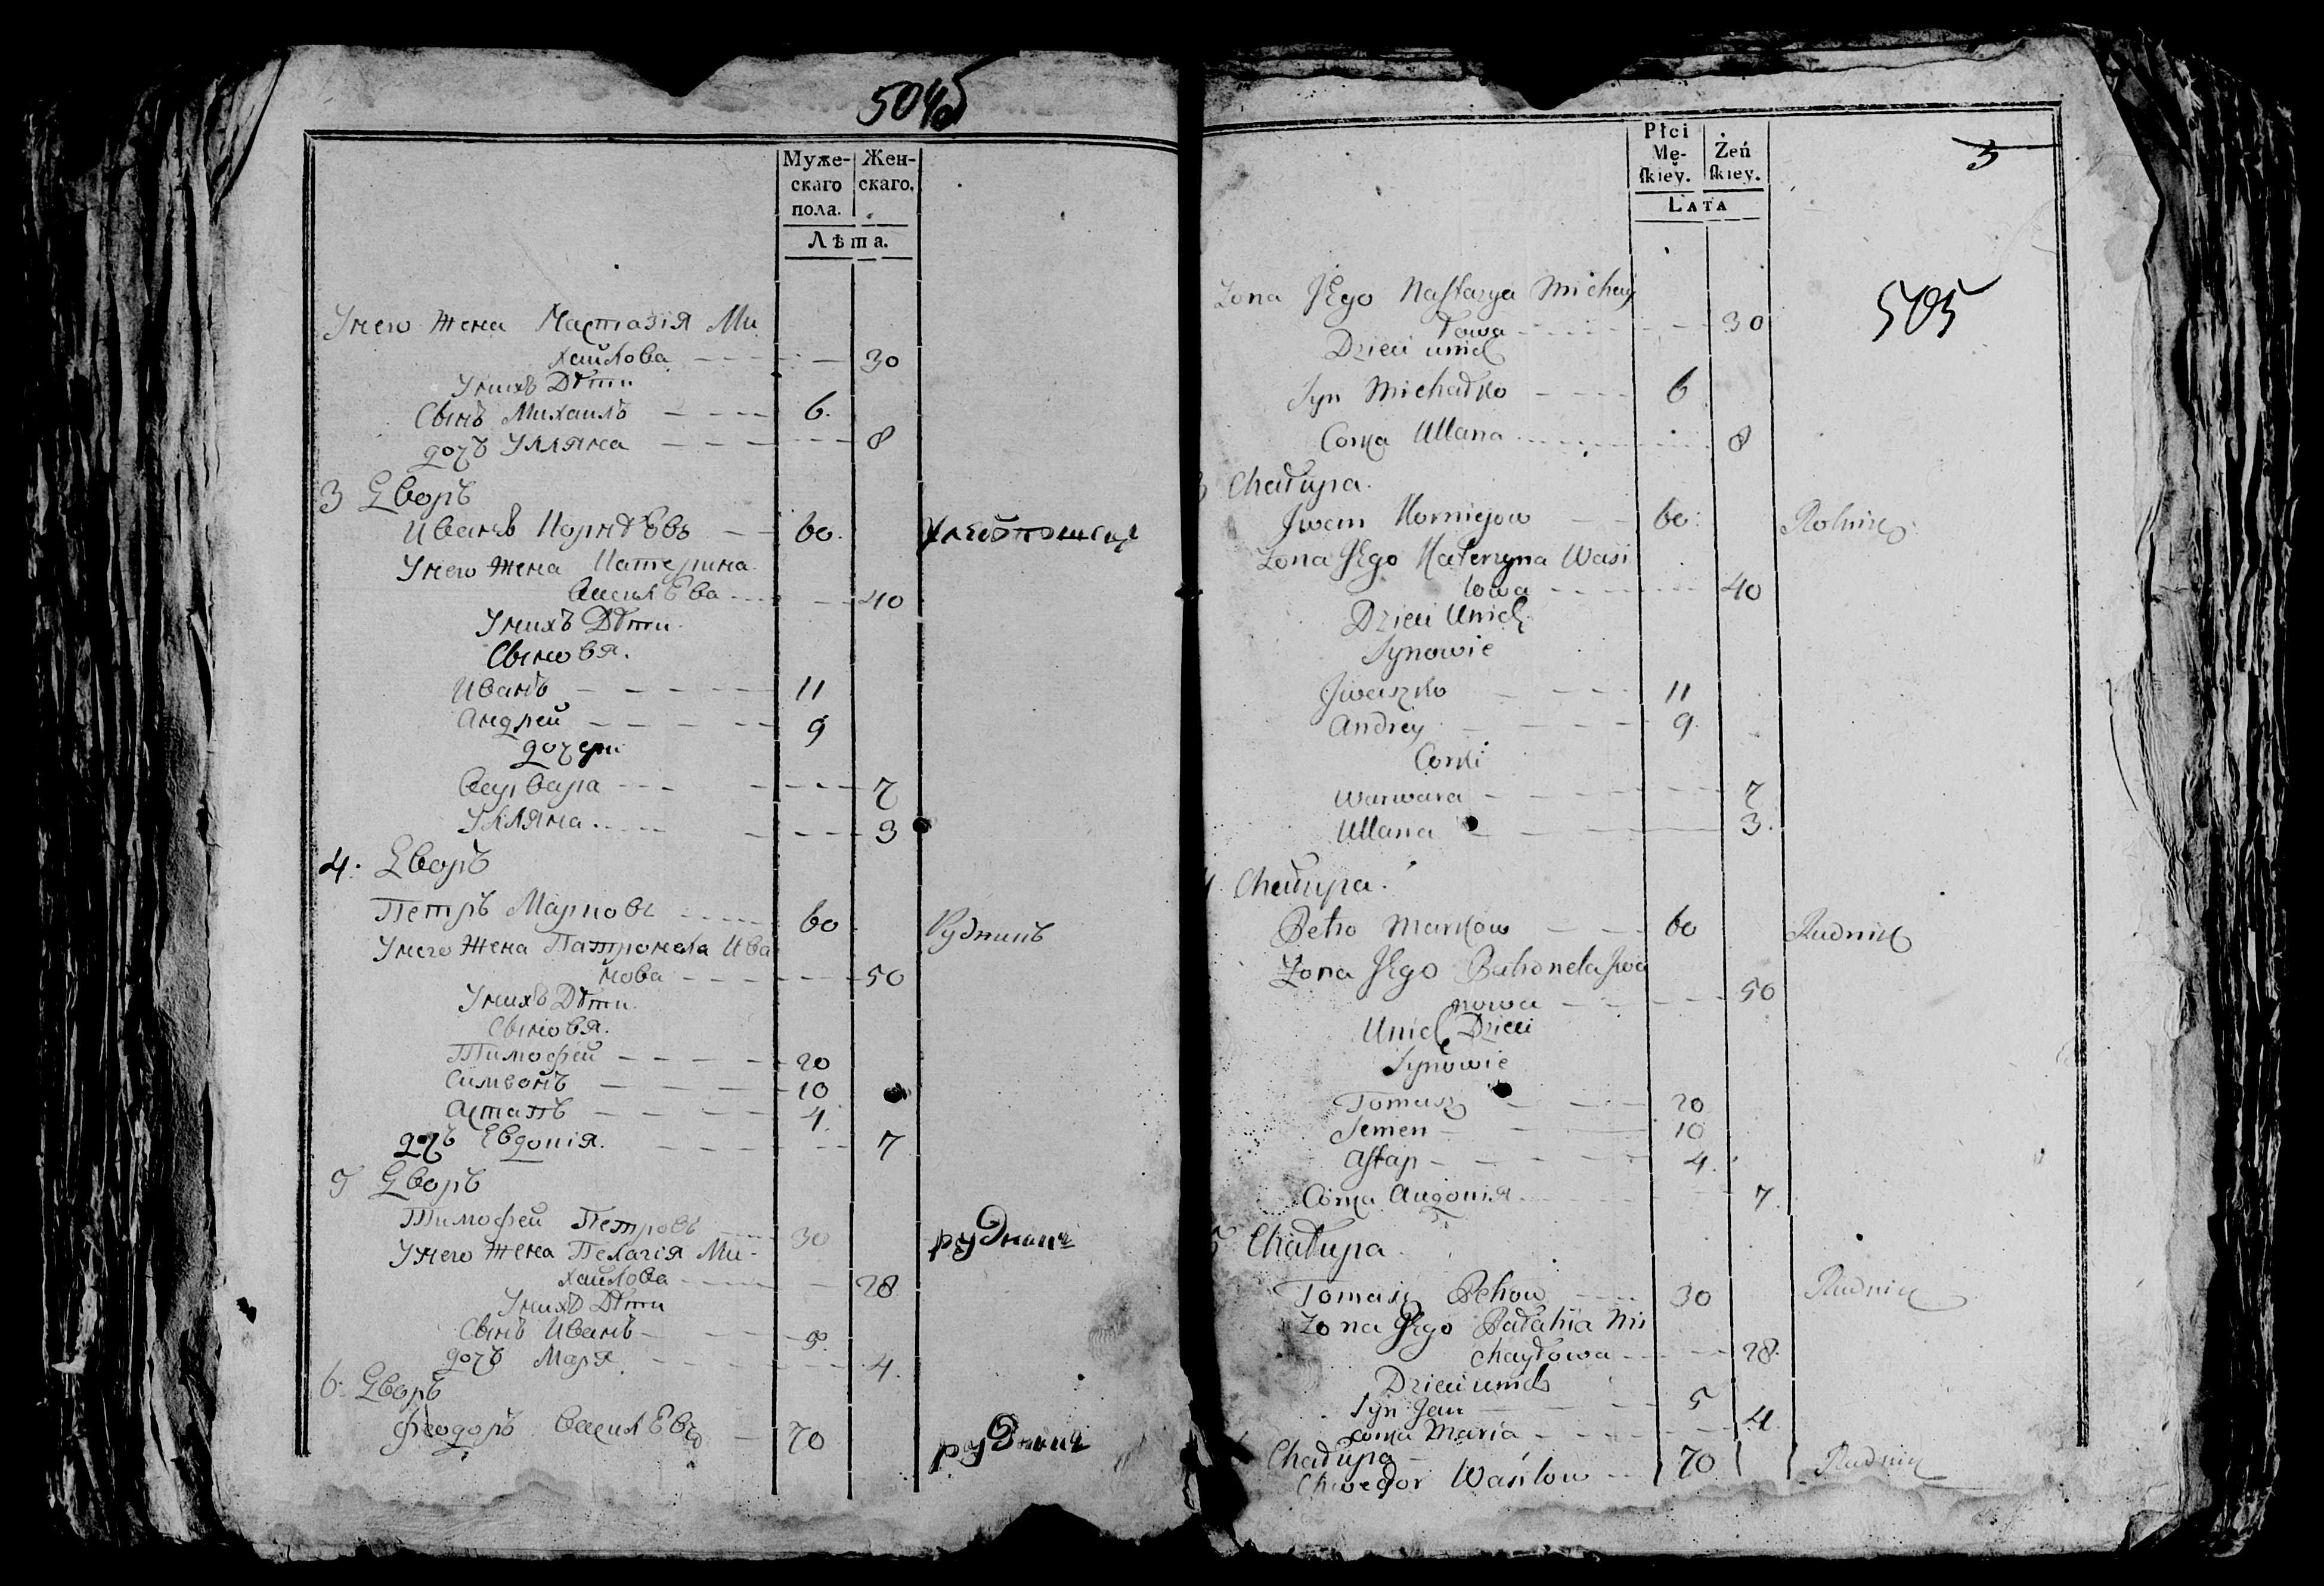 504б
Муже-
скаго
пола.
Жен-
скаго.
Лѣта.
У него жена Настазія Ми
хайлова 30
У нихъ Дѣти
Сынъ Михаилъ 6.
дочъ Улляна 8
3 Дворъ
Иванъ Корнѣевъ 60.
У него жена Катерина
Васильева 40
У нихъ Дѣти.
Сыновя.
Иванъ 11
Андрей 9
дочери
Варвара 7
Улляна 3
4. Дворъ
Петръ Марковъ 60 Рудникъ
У него жена Патронела Ива
нова 50
У нихъ Дѣти.
Сыновя.
Тимофей 20
Симеонъ 10
Астапъ 4.
дочъ Евдокія. 7
5 Дворъ
Тимофей Петровъ 30 рудникъ
У него жена Пелагія Ми-
хайлова 28
У нихъ Дѣти
Сынъ Иванъ 5.
дочъ Маря 4.
6. Дворъ
Феодоръ Васильевъ 70 рудникъ
Płci
Mę-
ſkiey.
Żeń
ſkiey.
LATA
3
505
Zona JEgo Naſtazya Michay
łowa 30
Dzieci unich
Syn Michałko 6
Corka Ullana 8
3 Chałupa.
Jwan Korniejow 60. Rolnik
Zona JEgo Katerzyna Wasi
lowa 40
Dzieci Unich
Synowie
Jwaszko 11
Andrey 9.
Corki
Warwara 7
Ullana 3.
4. Chałupa.
Petro Markow 60 Rudnik
Zona JEgo Patronela Jwa
nowa 50
Unich Dzieci
Synowie
Tomasz 20
Semen 10
Aſtap 4.
Corka Audokia 7.
5 Chałupa.
Tomasz Petrow 30 Rudnik
Zona JEgo Pałahia Mi
chayłowa 28.
Dzieci unich
Syn Jan 5
corka Maria 4.
Chałupa
Chwedor Wasilow 70 Rudnik